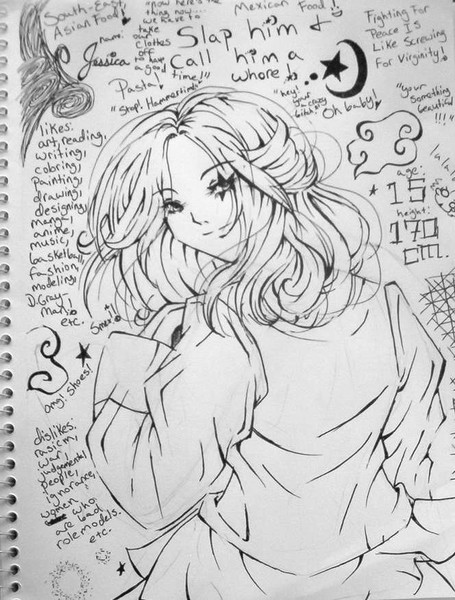 South-East,
Asian Food
"now here's the
thing now....
we have to
take
our
clothes
off
to have
a good
time!"
name:
Jessica
Pasta
"Stop! Hammertime"
Slap him &
Call him a
whore.
Mexican Food!
Fighting For
Peace Is
Like Screwing
For Virginity!
"hey!
your
a crazy
bitch!"
Oh baby!
"your
something
beautiful
!!!"
likes:
art, reading,
writing,
coloring,
Painting,
drawing,
designing,
manga,
anime,
music,
basketball,
fashion,
modeling,
D.Gray-
Man,
etc.
age:
15
height:
170
cm.
Omg! Shoes!
dislikes:
rasicm,
war,
judgemental
people,
ignorance,
women
who
are bad
rolemodels.
etc.